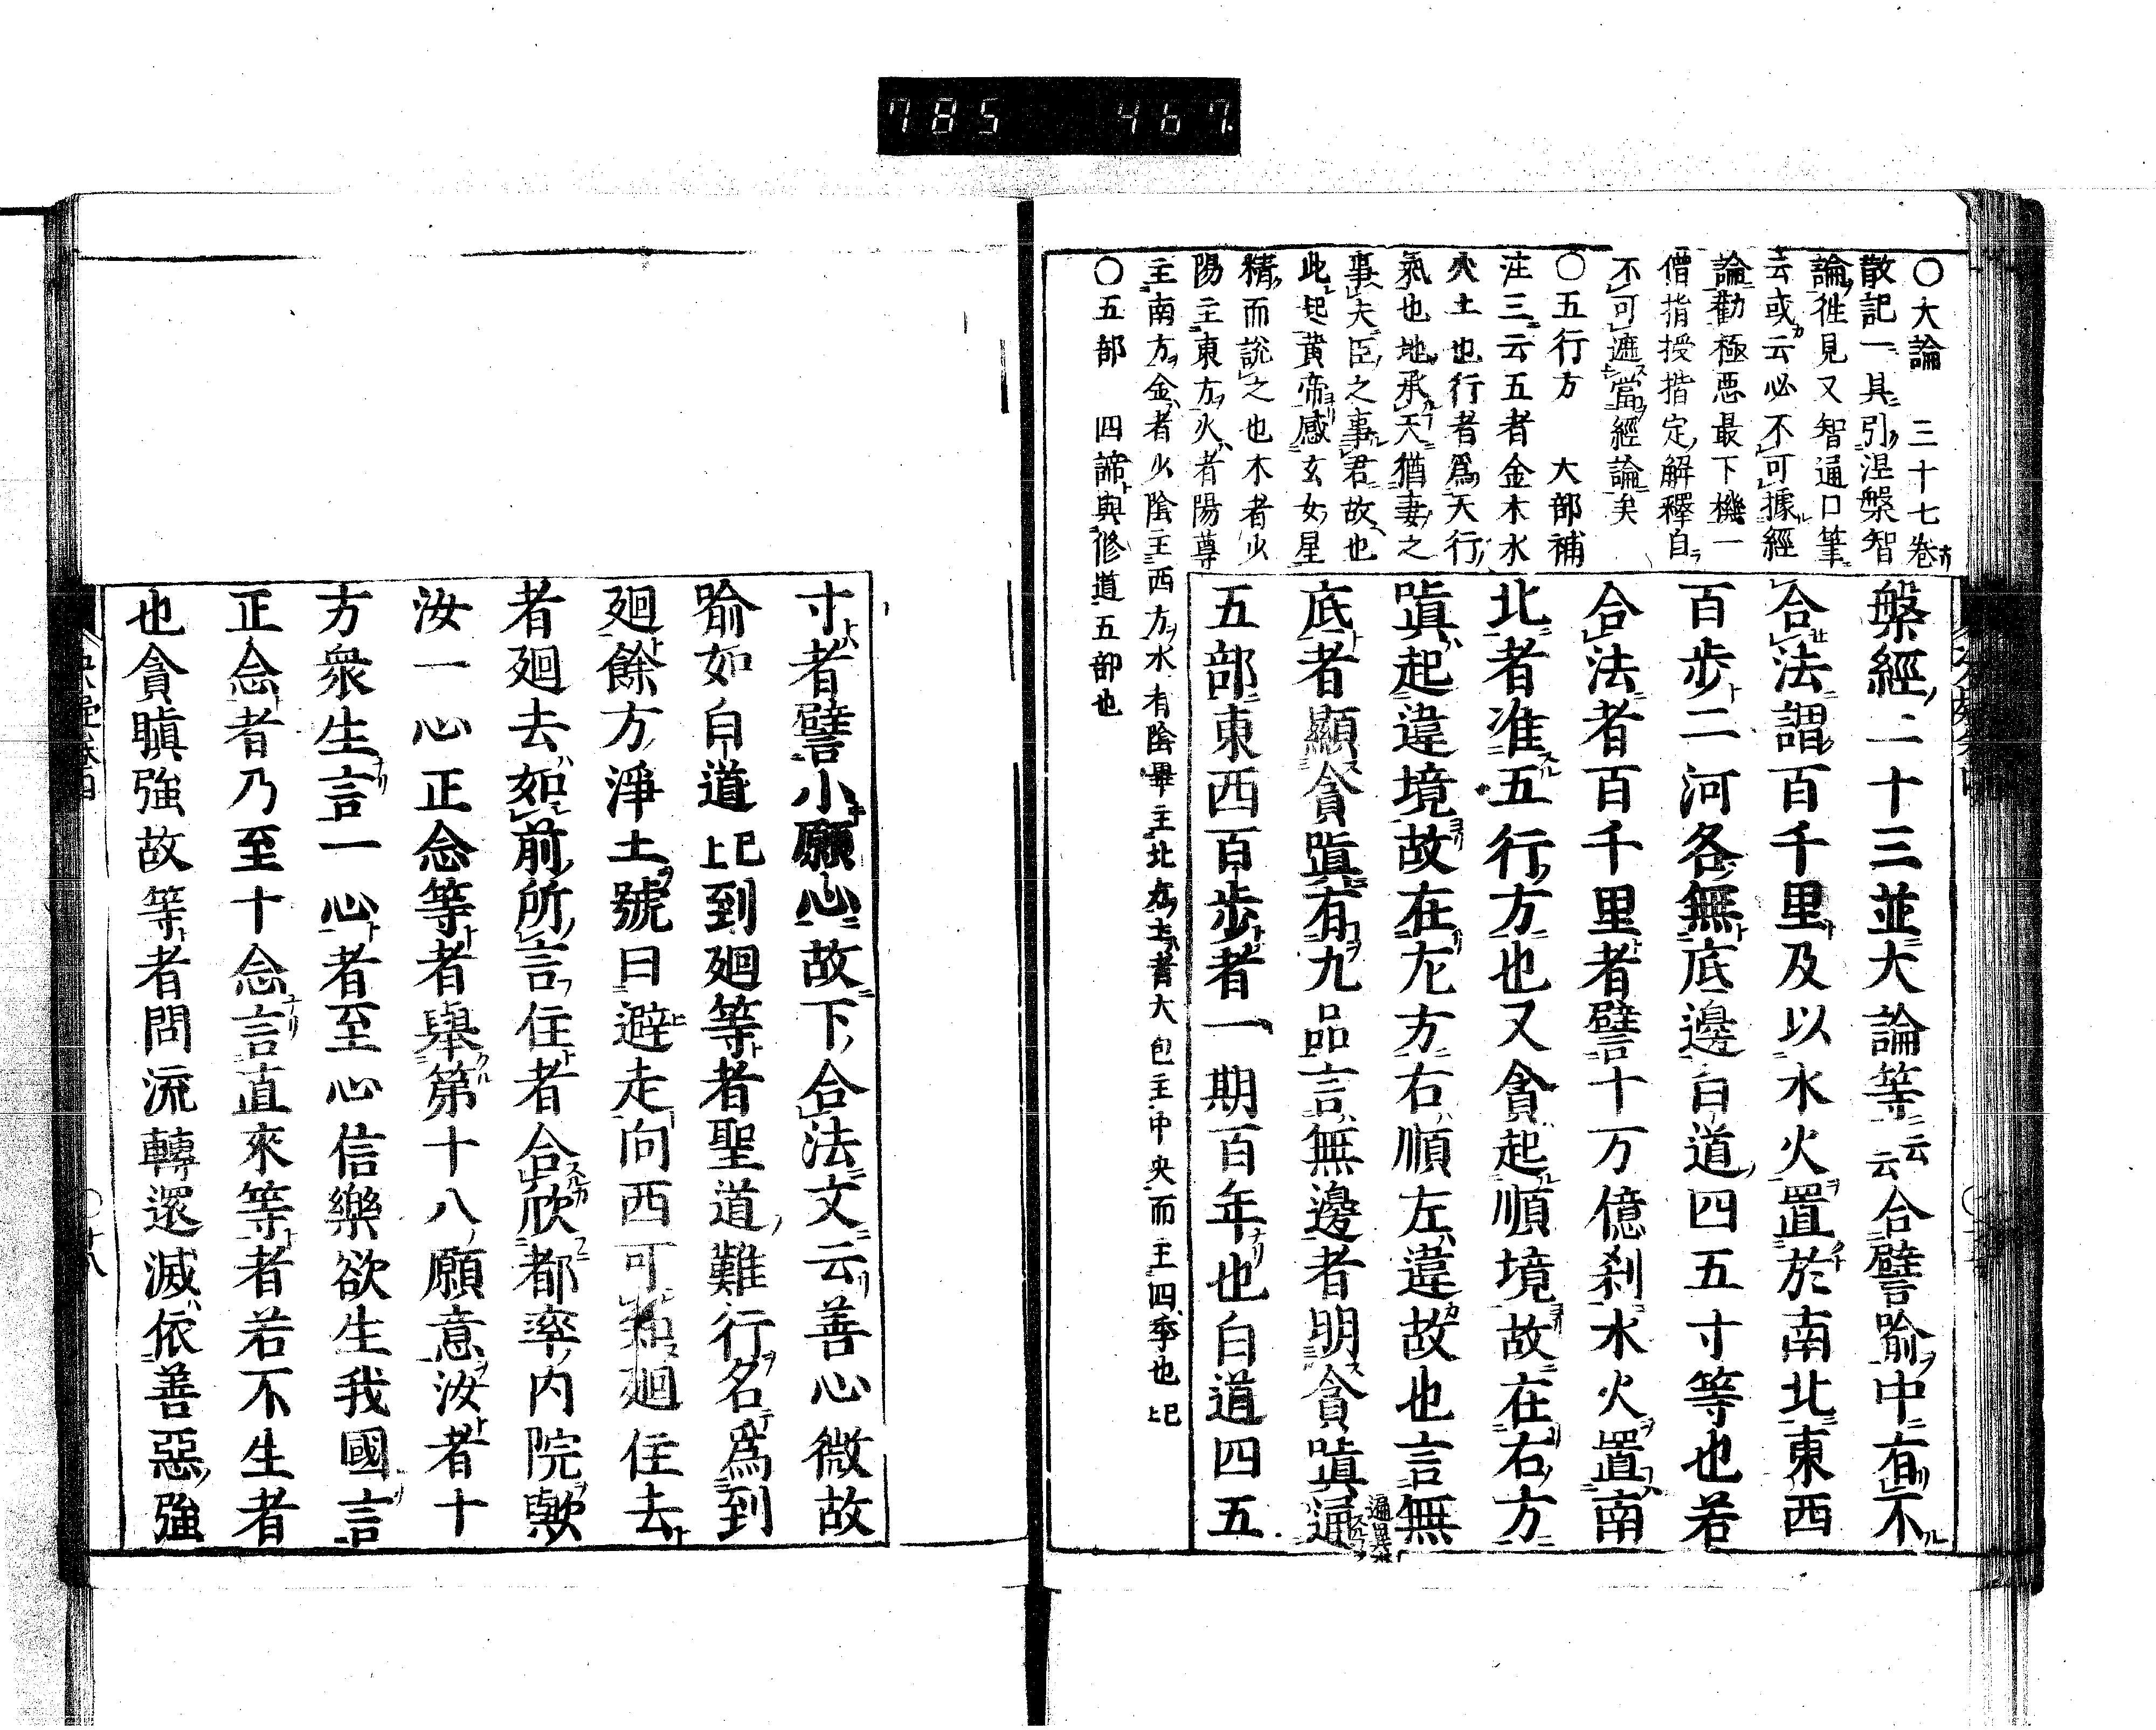 785 467
○大論 三十七卷
散記一具引涅槃智
論徃見又智通口筆
云或云必不可據經
論勸極悪最下機一
僧指授揩定解釋自
不可遮當經論矣
○五行方 大部補
注三云五者金木水
火土也行者爲天行
氣也地承天猶妻之
事夫臣之事君故也
此起黄帝感玄女星
精而説之也木者少
陽主東方火者陽尊
主南方金者少陰主西方水有陰畢主北方土者大包主中央而主四季也已上
○五部 四諦與修道五部也
槃經二十三並大論等云云合譬喩中有不
合法謂百千里及以水火置於南北東西
百歩二河各無底邊白道四五寸等也若
合法者百千里者譬十万億刹水火置南
北者准五行方也又貪起順境故在右方
嗔起違境故在左方右順左違故也言無
底者顯貪嗔有九品言無邊者明貪嗔通
五部東西百歩者一期百年也白道四五
寸者譬小願心故下合法文云善心微故
喩如白道已上到廻等者聖道難行名爲到
廻餘方淨土號曰避走向西可廻住去
者廻去如前所言住者合欣都率内院歟
汝一心正念等者舉第十八願意汝者十
方衆生言一心者至心信樂欲生我國言
正念者乃至十念言直來等者若不生者
也貪瞋強故等者問流轉還滅依善惡強